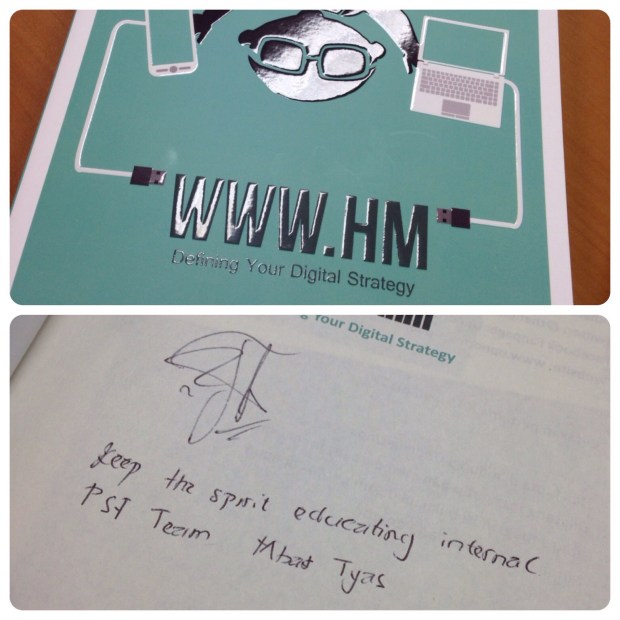 WWW.HM
Defining Your Digital Strategy
Your Digital Strategy
Keep the spirit educating internal
PSJ Team Mbak Tyas